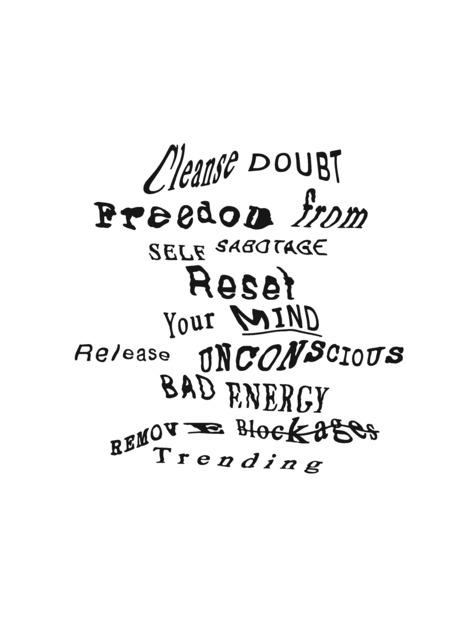 Cleanse DOUBT
Freedom from
SELF SABOTAGE
Reset
Your MIND
Release UNCONSCIOUS
BAD ENERGY
REMOVE Blockages
Trending